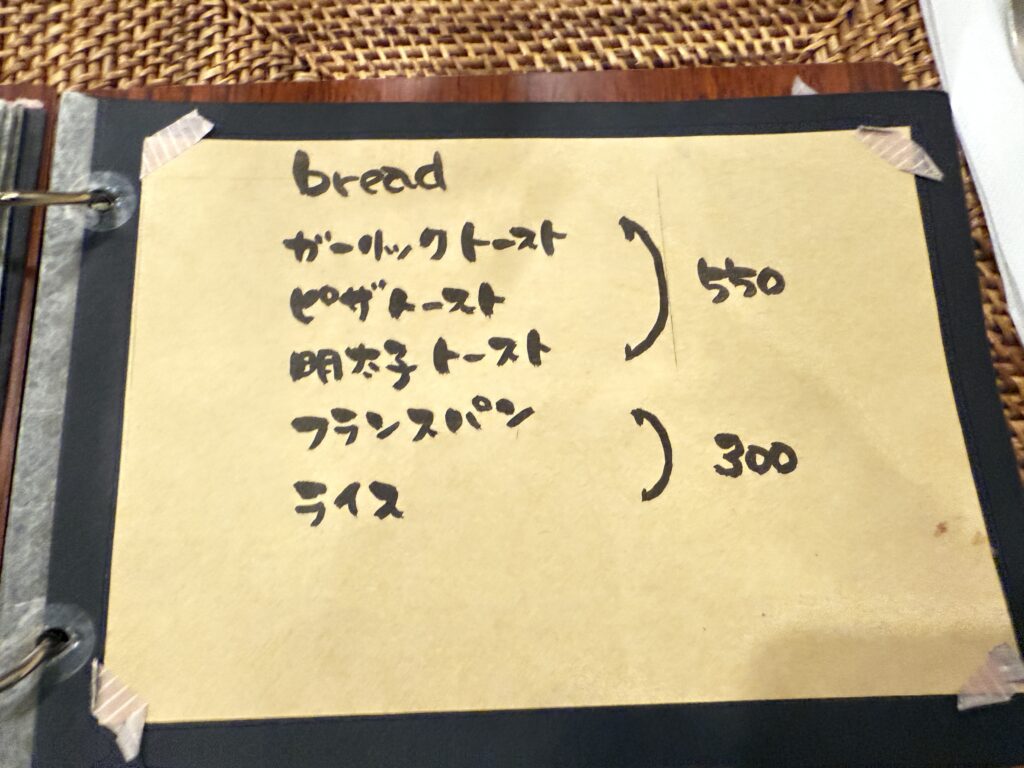 bread
ガーリックトースト
ピザトースト
明太子トースト
550
フランスパン
ライス
300